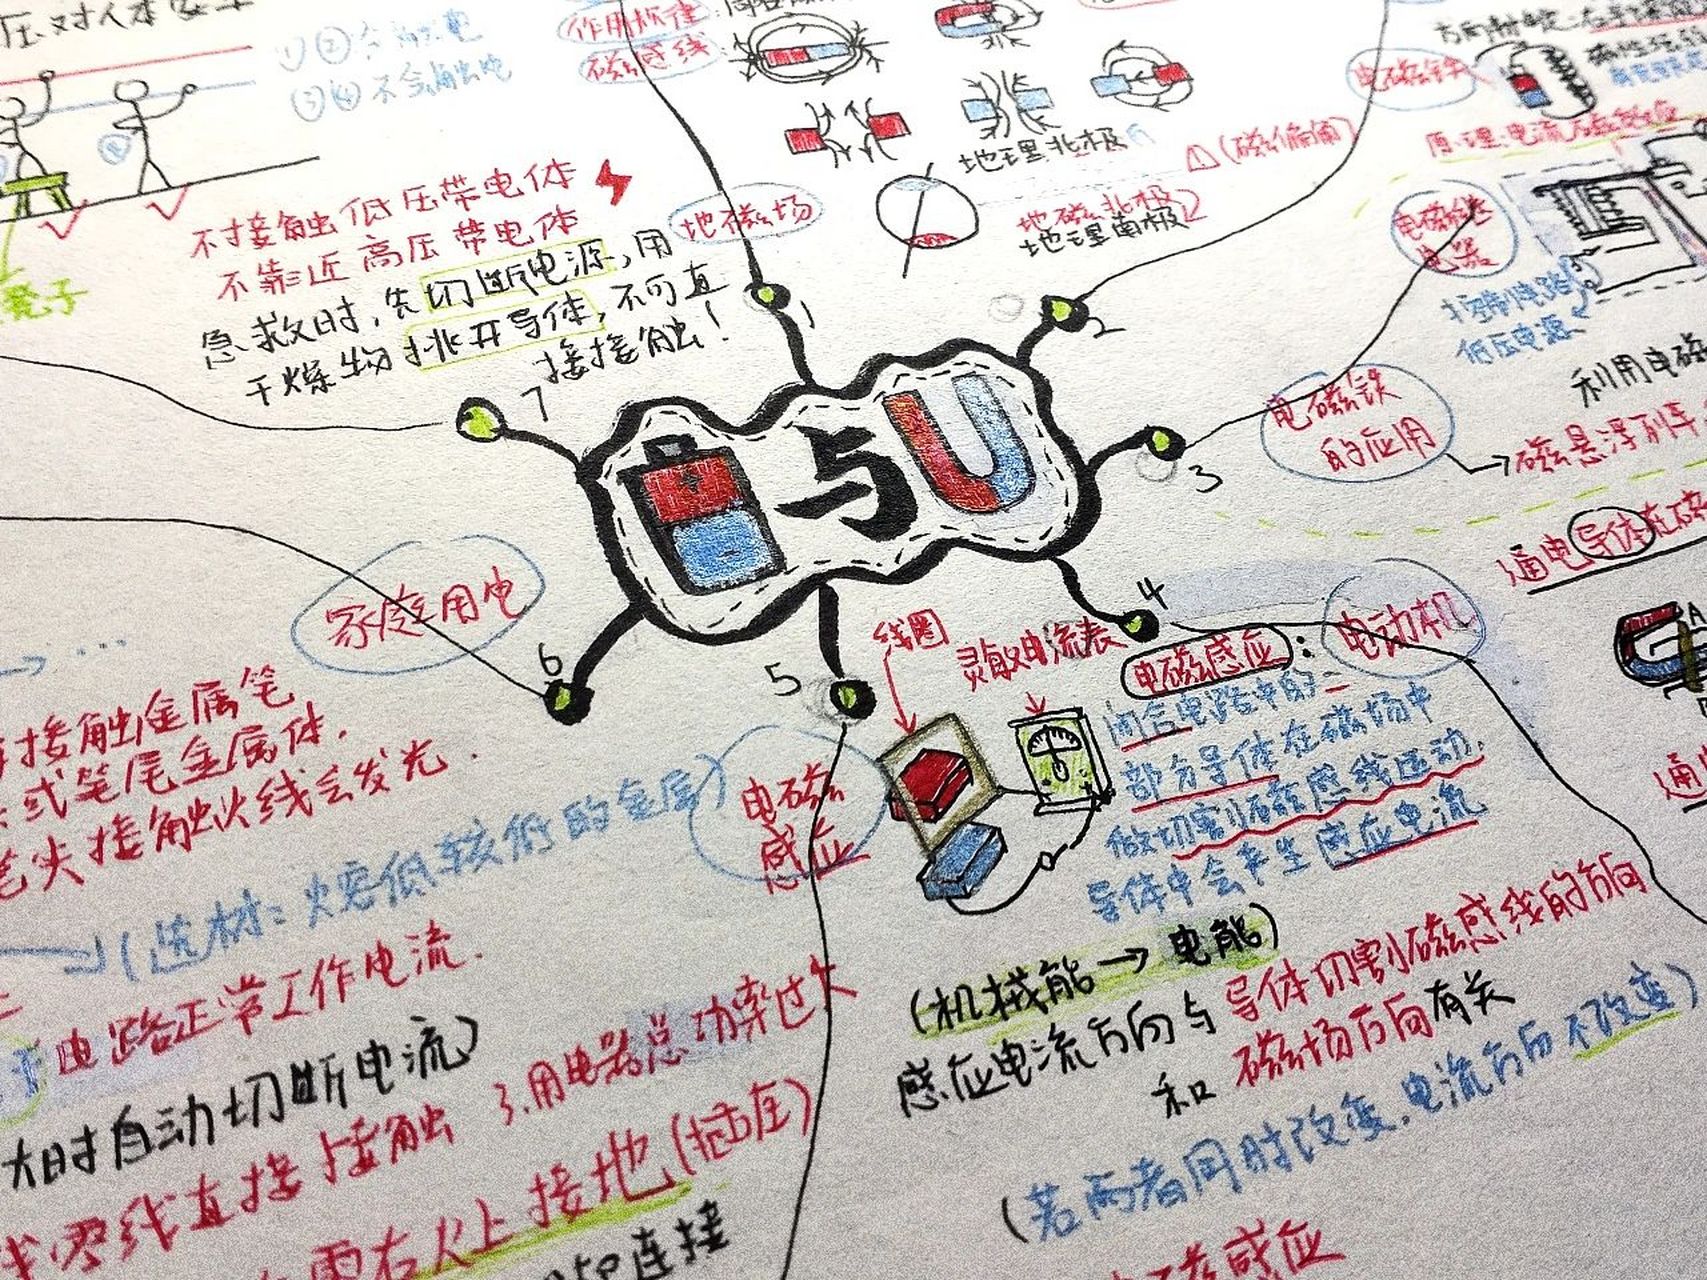 压对人体安全
①②会触电
③④不会触电
②
凳子
不接触低压带电体
不靠近高压带电体
急救时,先切断电源,用
干燥物挑开导体,不可直
接接触!
作用规律:
磁感线
地理北极
⚠(磁偏角)
地磁场
地磁北极
地理南极
电磁铁
原理:电流
电磁继
电器
控制电路
低压电源
利用电磁
电磁铁
的应用
→磁悬浮列车
通电导体在磁
1
2
3
4
5
6
7
与
家庭用电
→...
接触金属笔
或笔尾金属体.
笔尖接触火线会发光.
(选材:熔低较低的金属)
电路正常工作电流.
大时自动切断电流)
零线直接接触 3.用电器总功率过大
需右火上接地(插座)
连接
电磁
感应
线圈
灵敏电流表
电磁感应:
电动机
A
闭合电路中的一
部分导体在磁场中
做切割磁感线运动.
导体中会产生感应电流
(机械能→电能)
感应电流方向与导体切割磁感线的方向
和 磁场方向有关
(若两者同时改变.电流方向不改变)
磁感应
通